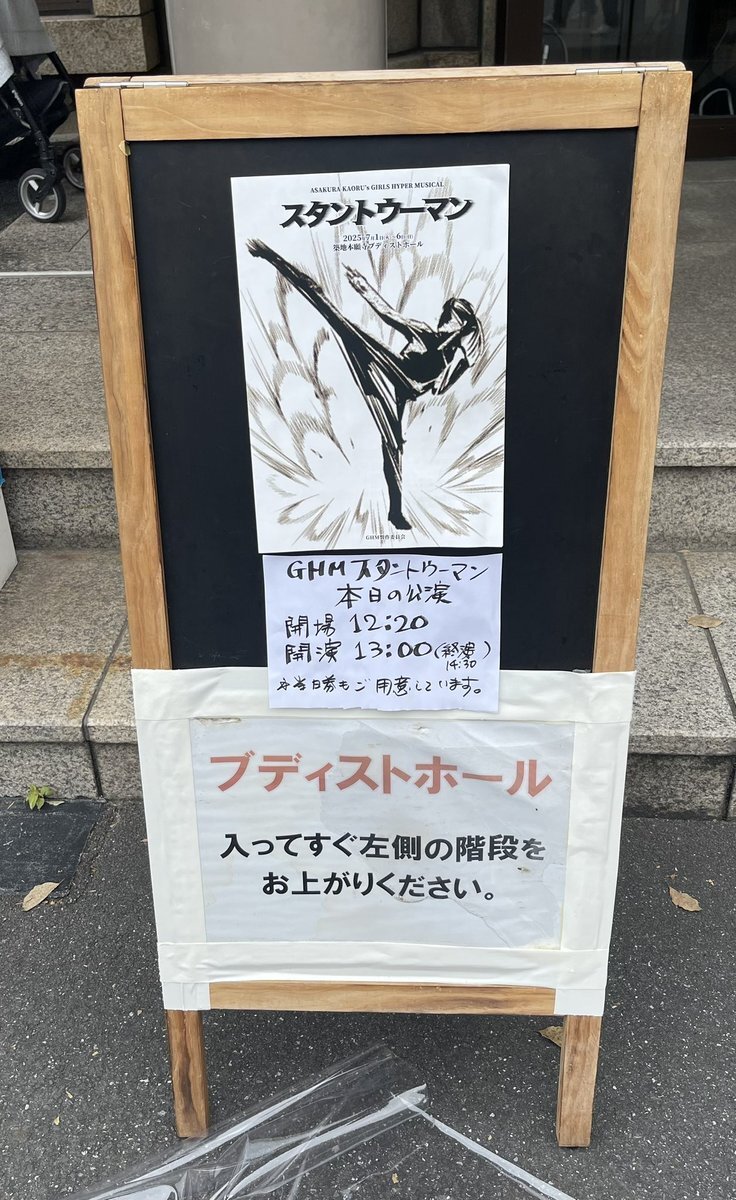 ASAKURA KAORU's GIRLS HYPER MUSICAL
スタントウーマン
2025年7月1日(火)-6日(日)
築地本願寺ブディストホール
GHM製作委員会
GHMスタントウーマン
本日の公演
開場 12:20
開演 13:00(終演 14:30)
当日券もご用意しています。
ブディストホール
入ってすぐ左側の階段を
お上がりください。